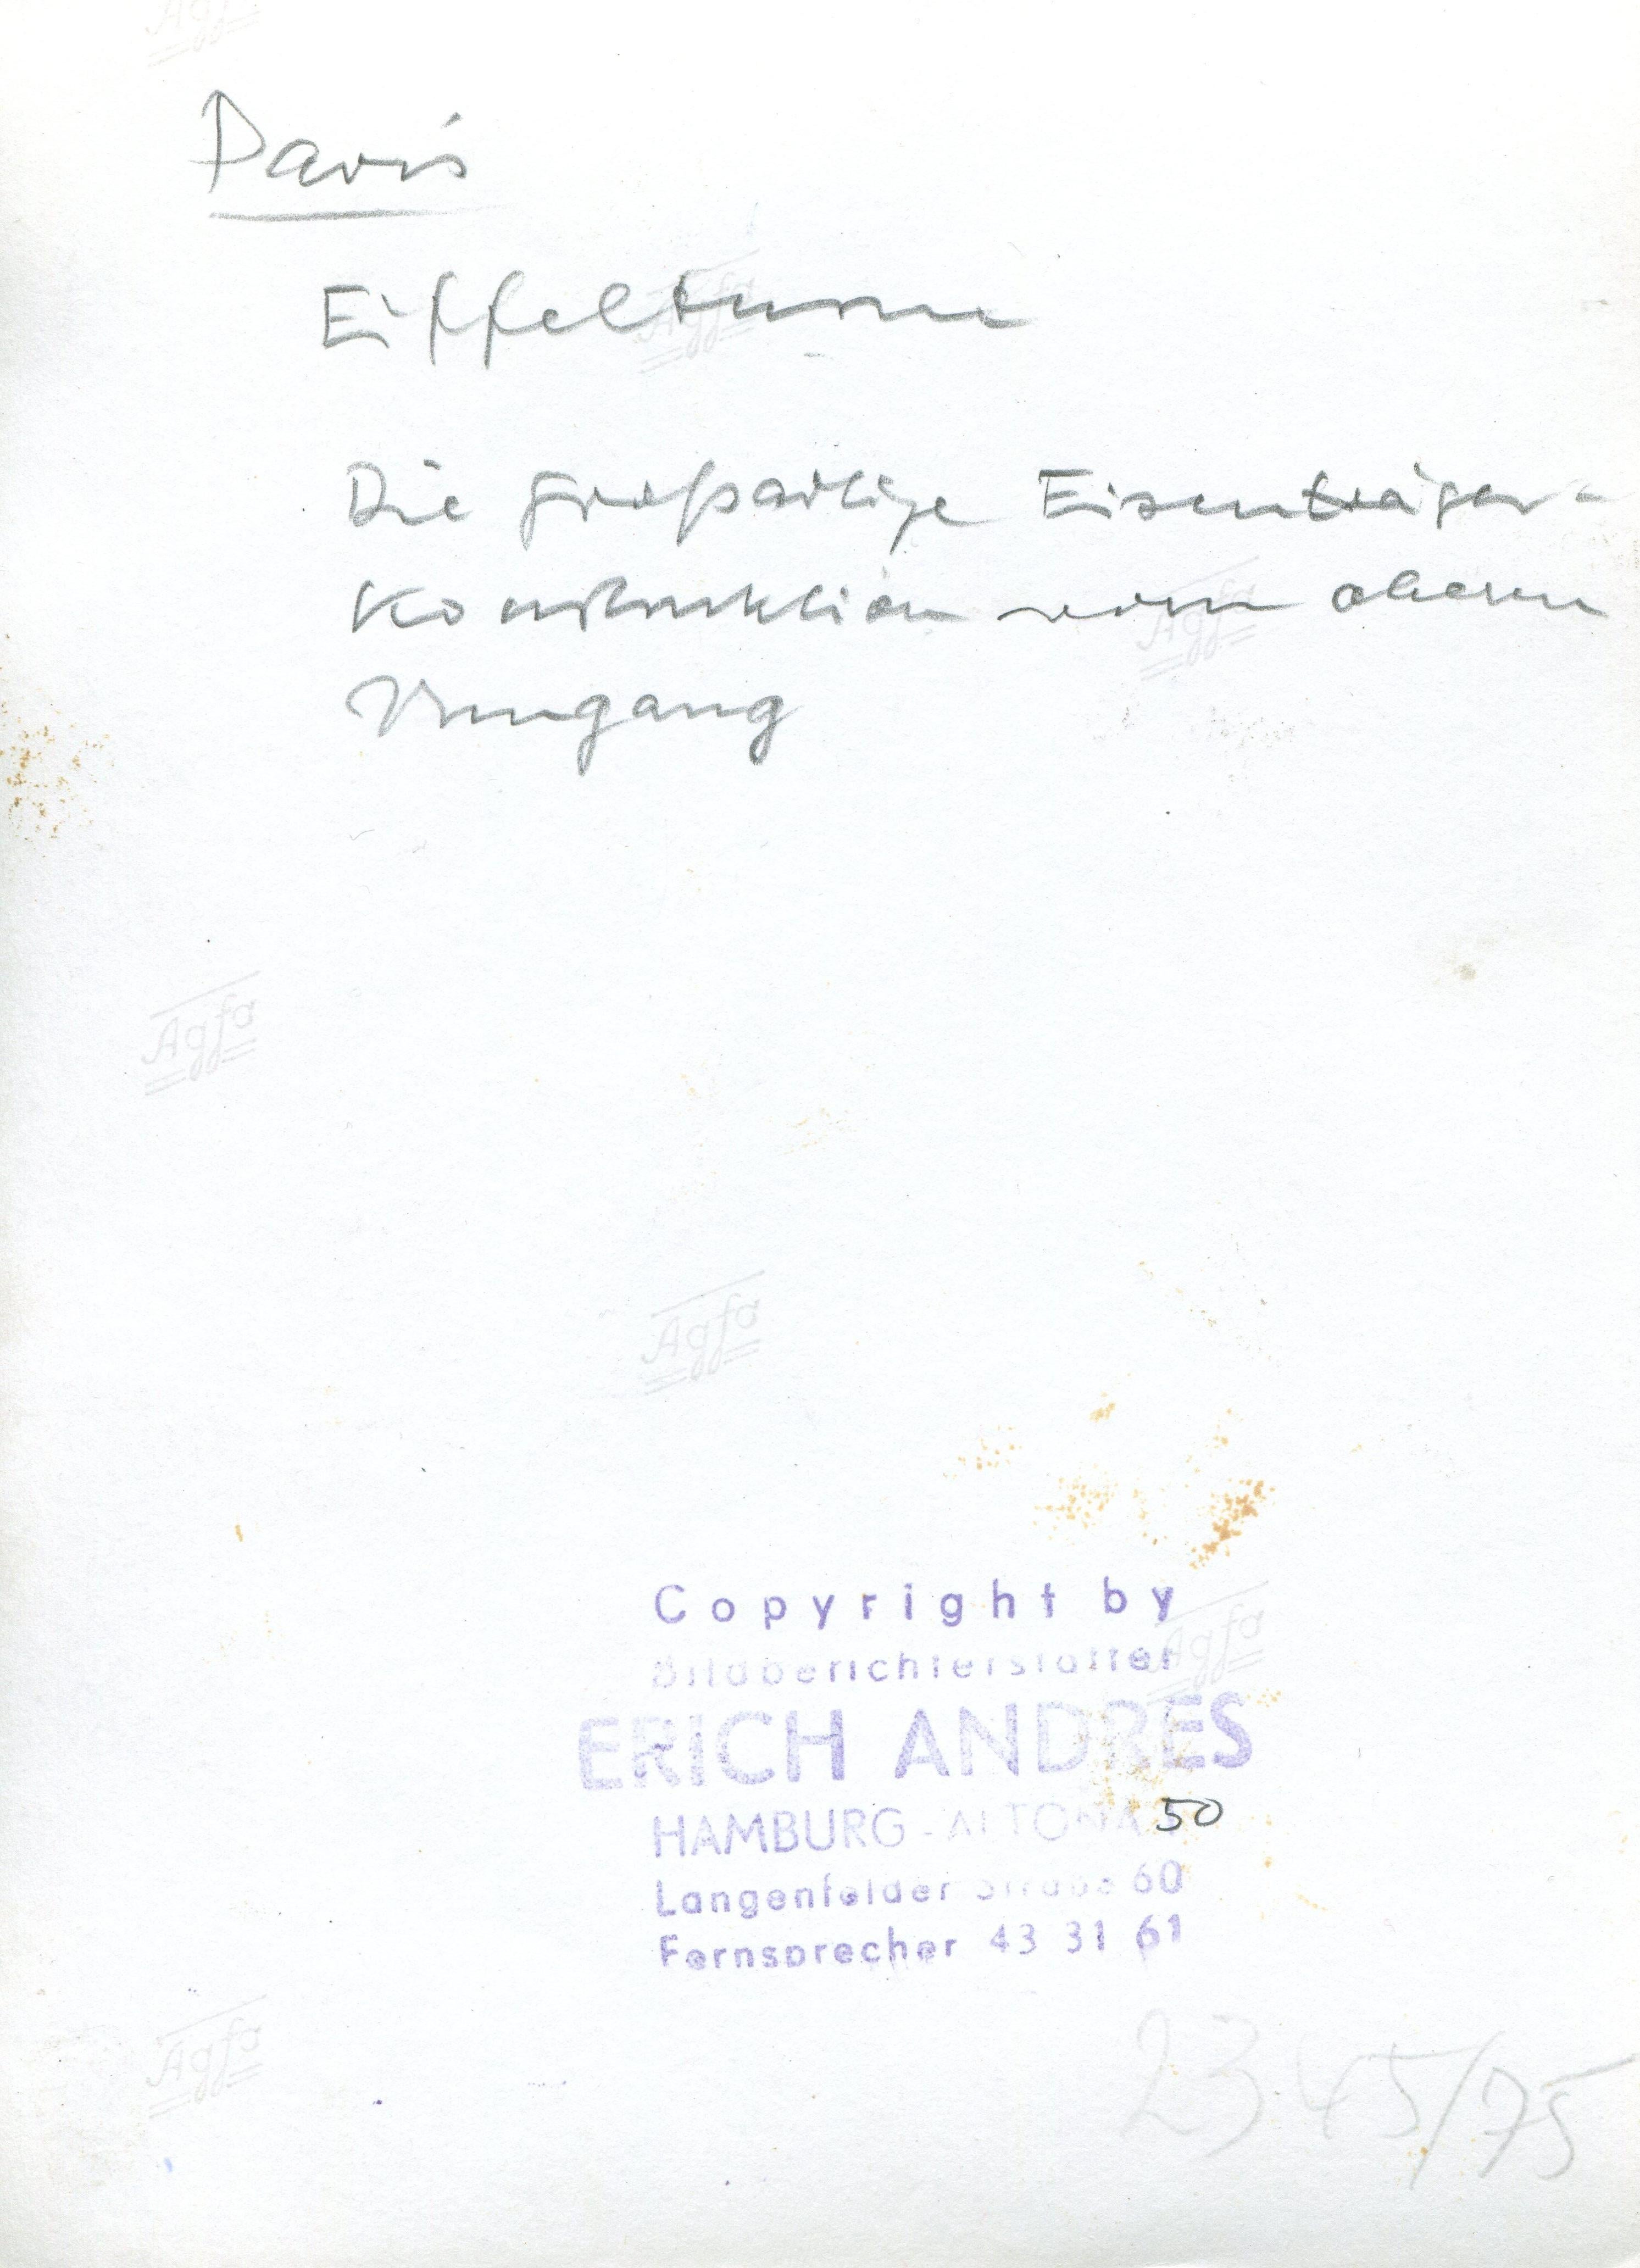 Agfa
Paris
Eiffelturm
Agfa
Die großartige Eisenträger-
Konstruktion vom oberen
Agfa
Umgang
Agfa
Agfa
Copyright by
Bildberichterstatter
Agfa
ERICH ANDRES
HAMBURG-ALTONA 50
Langenfelder Straße 60
Fernsprecher 43 31 61
Agfa
2345/75